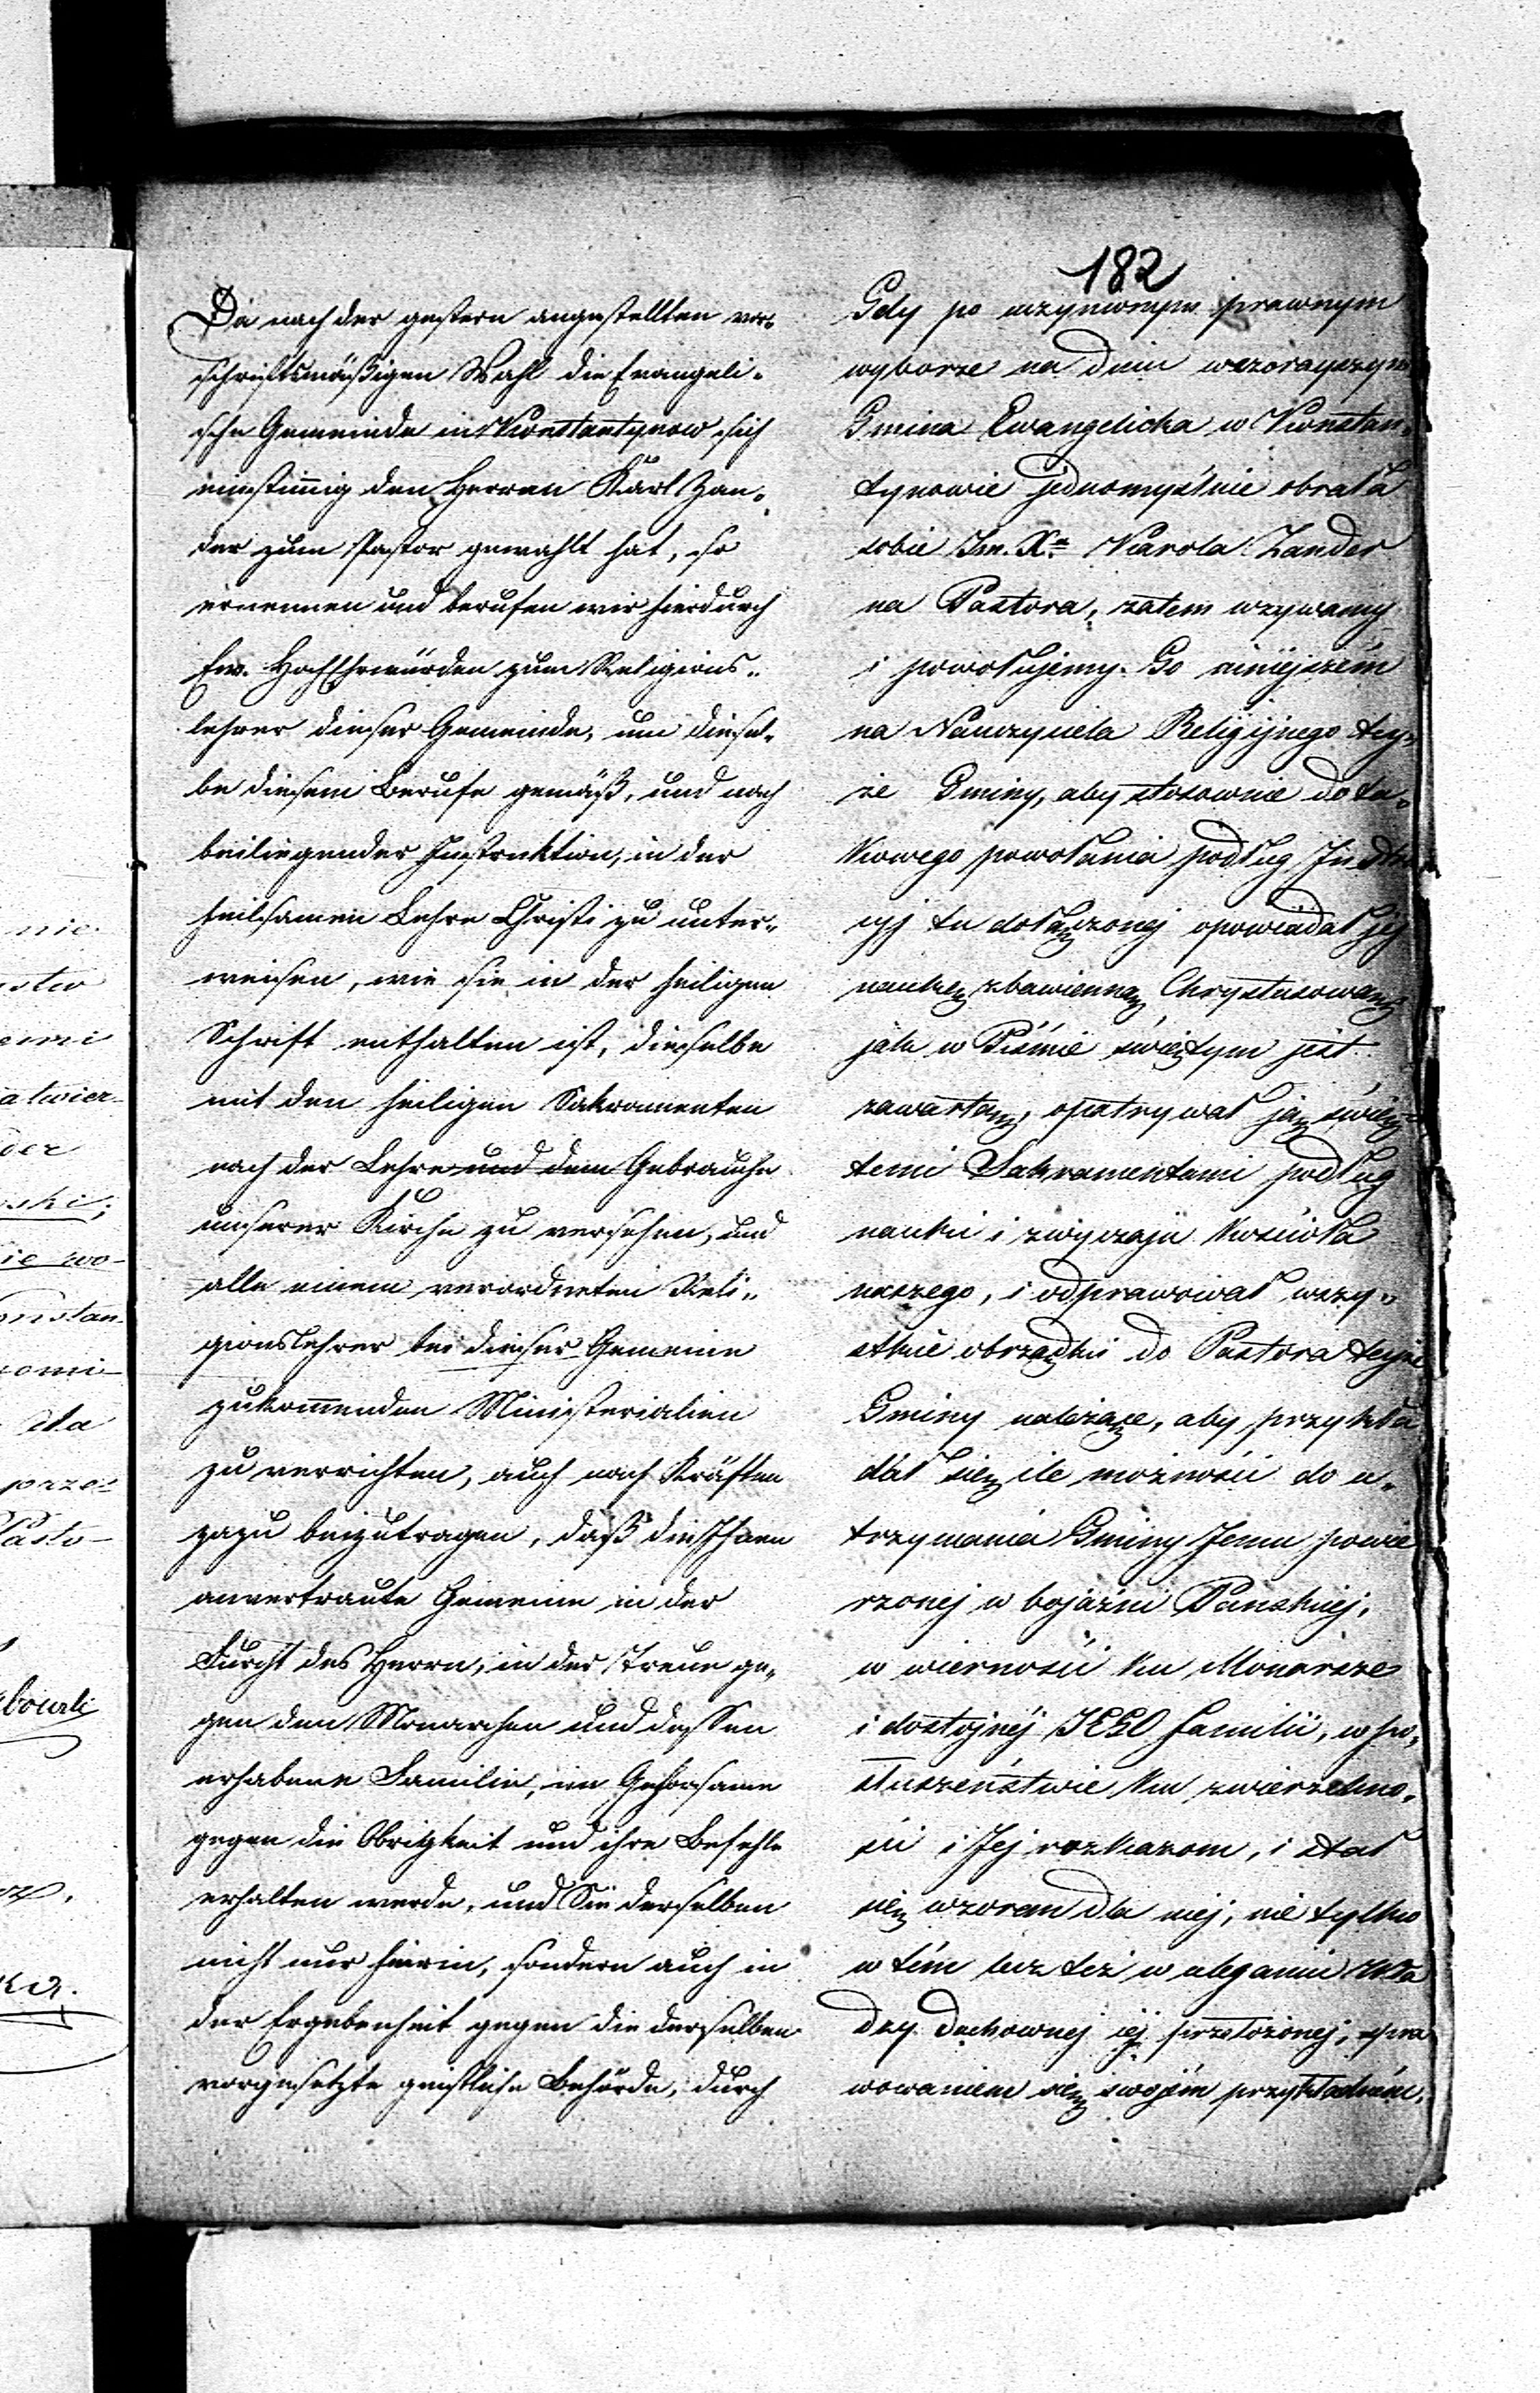 182
Da nach der gestern angestellten vor-
schriftsmäßigen Wahl die Evangeli-
sche Gemeinde in Konstantynow sich
einstimig den Herren Karl Zan-
der zum Pastor gewahlt hat, so
ernennen und berufen wir hierdurch
Ew. HochEhrwürden zum Religions-
lehrer dieser Gemeinde, um diesel-
be diesem Berufe gemäß, und nach
beiliegender Instruktion, in der
heilsamen Lehre Christi zu unter-
weisen, wie sie in der heiligen
Schrift enthalten ist, dieselbe
mit den heiligen Sakramenten
nach der Lehre und dem Gebrauche
unserer Kirche zu versehen, und
alle einem verordneten Reli-
gionslehrer bei dieser Gemeine
zukomenden Ministerialien
zu verrichten, auch nach Kräften
dazu beizutragen, daß die Ihnen
anvertraute Gemeine in der
Furcht des Herrn, in der Treue ge-
gen den Monarchen und dessen
erhabene Familie, im Gehorsame
gegen die Obrigkeit und ihre Befehle
erhalten werde, und Sie derselben
nicht nur hierin, sondern auch in
der Ergebenheit gegen die derselben
vorgesetzte geistliche Behörde, durch
Gdy po uczynionym prawnym
wyborze na dniu wczorayszym
Gmina Ewangelicka w Konstan-
tynowie jednomyślnie obrała
sobie Im. Xa Karola Zander
na Pastora, zatem wzywamy
i powołujemy Go niniéjszém
na Nauczyciela Religijnego tey-
że Gminy, aby stosownie do ta-
kowego powołania podług Instru
cyj tu dołączonej opowiadał jéj
naukę zbawienną Chrystusową
jak w Piśmie świętym jest
zawarta, opatrywał ją świę-
temi Sakramentami podług
nauki i zwyczaju kościoła
naszego, i odprawował wszy-
stkie obrządki do Pastora teyże
Gminy należące, aby przykła
dał się ile możności do u-
trzymania Gminy Jemu powie
rzonej w bojaźni Pańskiej,
w wierności ku Monarsze
i dostojnéj JEGO familii, w po-
słuszeństwie ku zwierzchno-
ści i Jej rozkazom, i stał
się wzorem dla niej, nie tylko
w tém lecz też w uleganiu wła
dzy duchownej jéj przełożonej, spra
wowaniem się swojém przykładném,